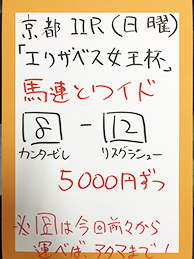 京都11R(日曜)
「エリザベス女王杯」
馬連とワイド
8 - 12
カンタービレ リスグラシュー
5000円ずつ
※8は今回前々から
運べば、アタマまで!